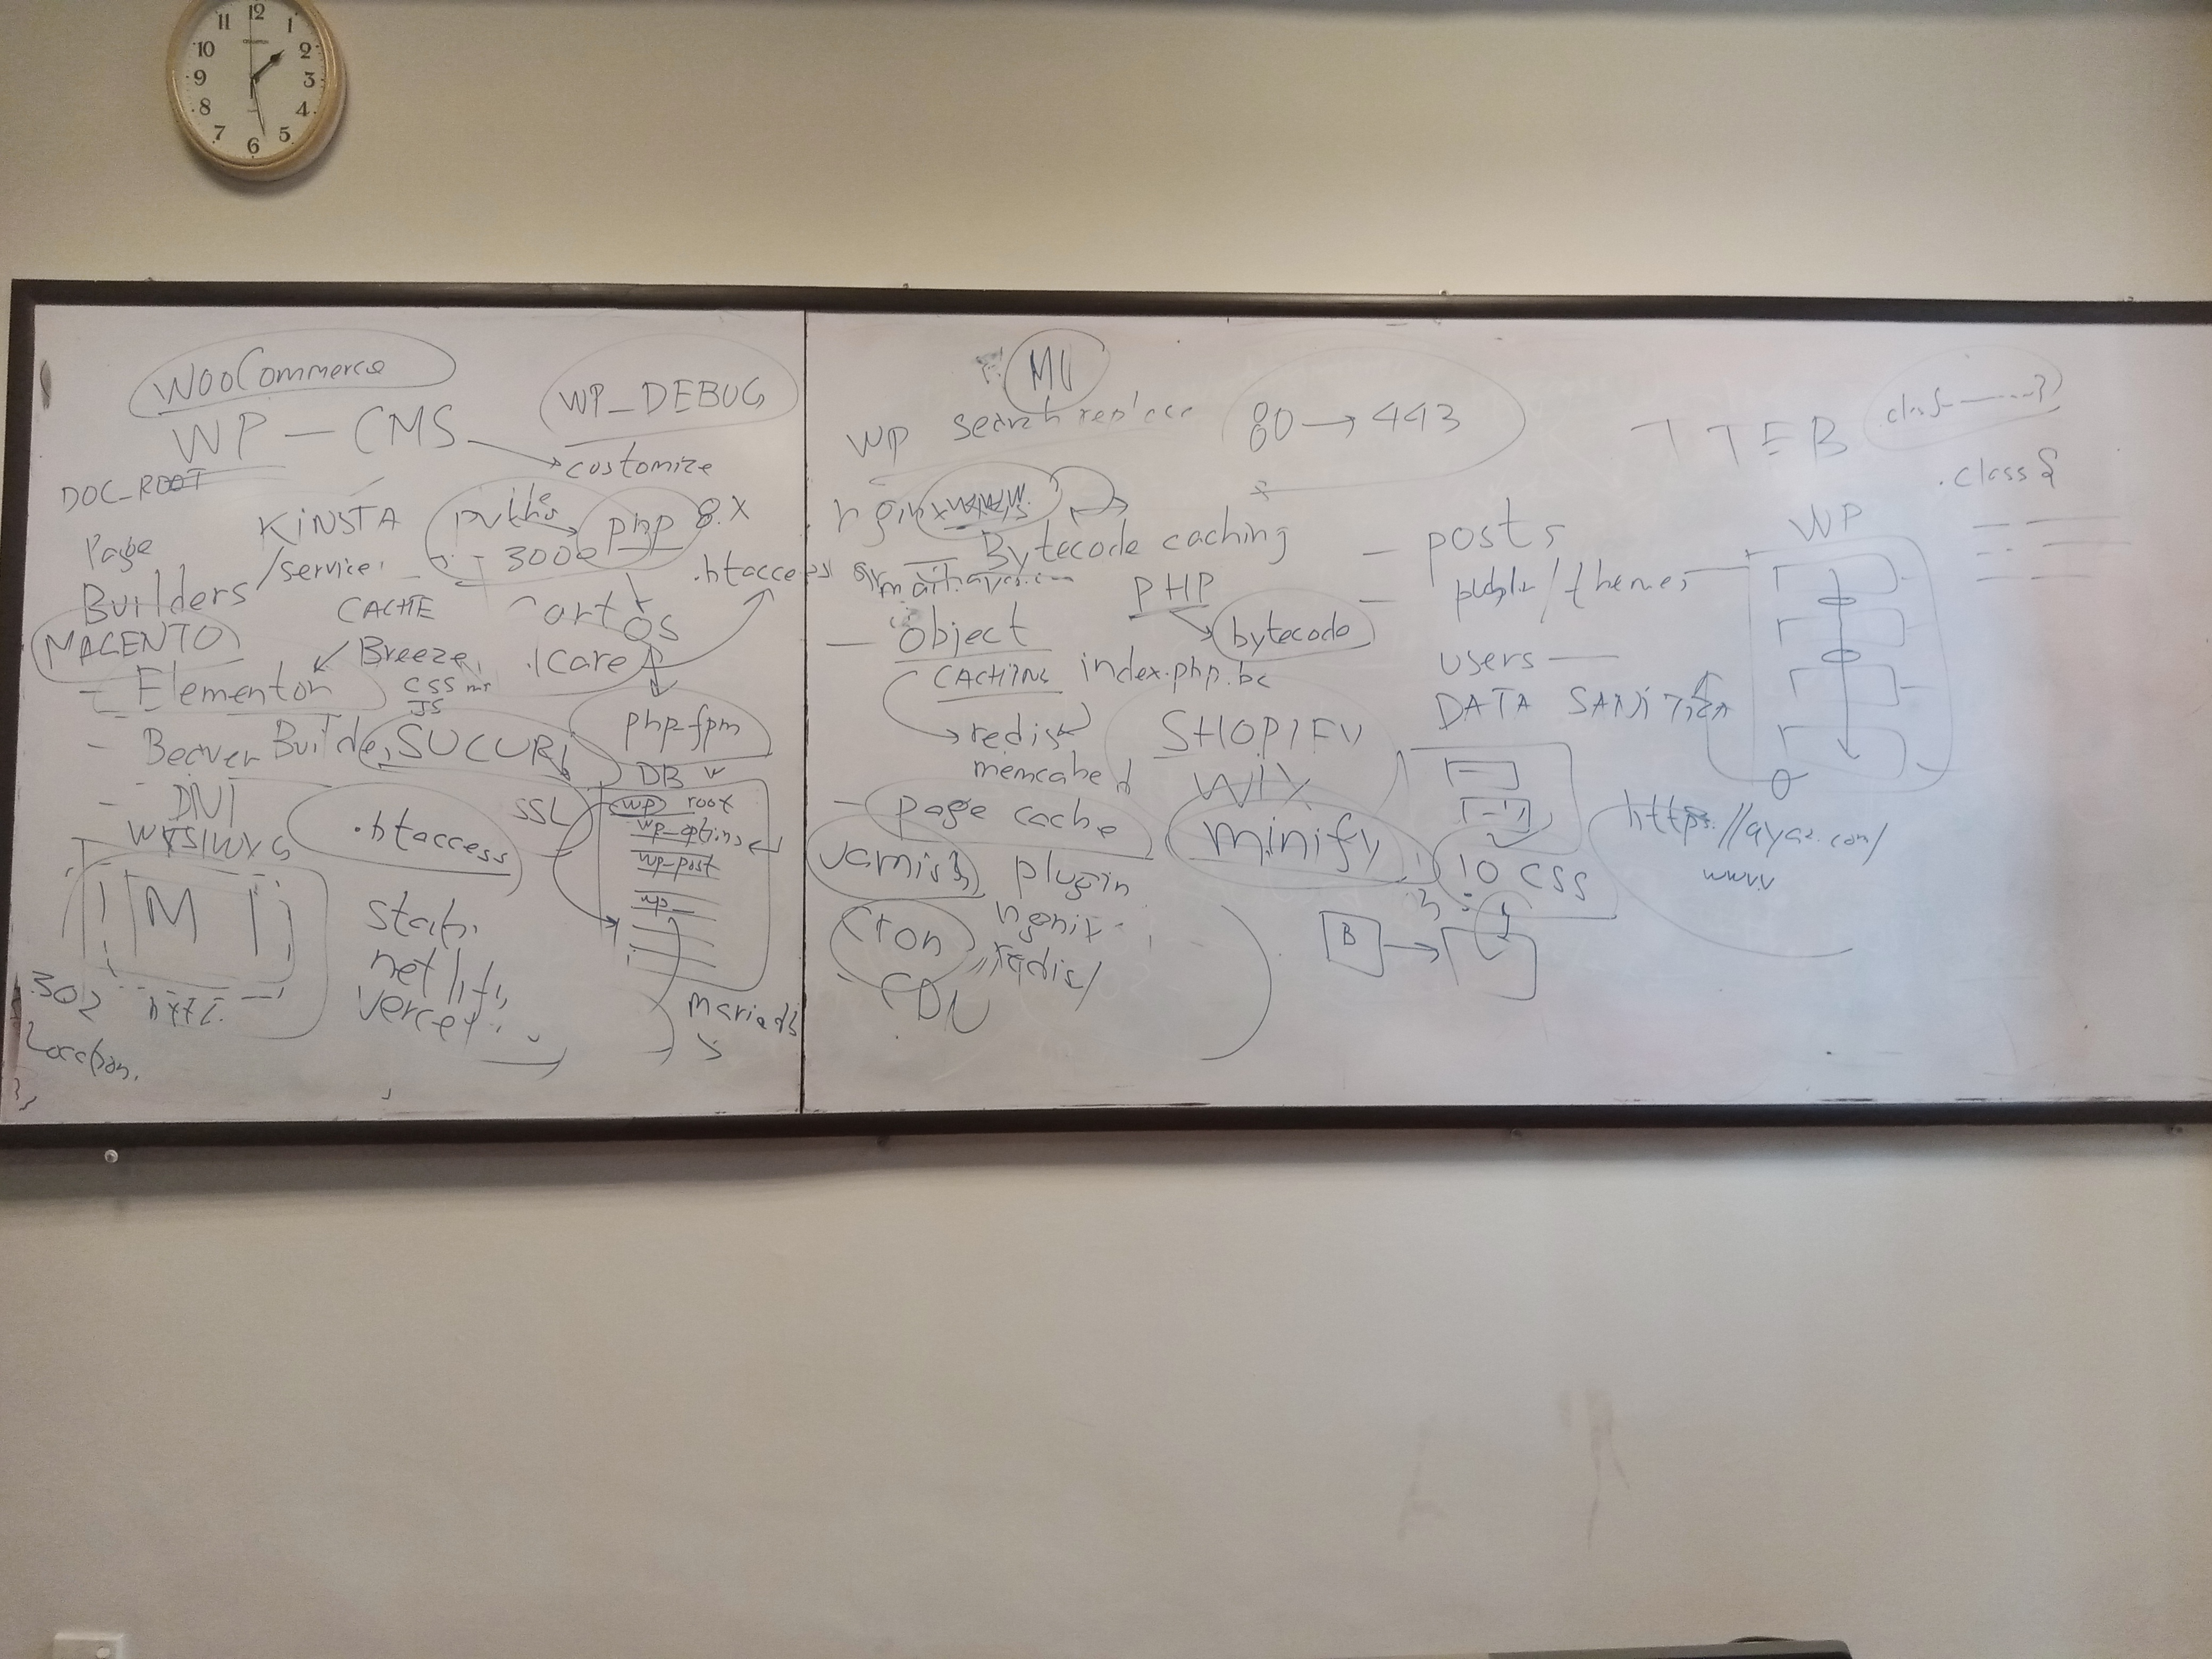 12
11
1
10
2
9
3
8
4
7
5
6
WooCommerce
WP_DEBUG
WP - CMS
customize
DOC_ROOT
KINSTA
php 8.x
Page
Builders
/service
300
.htaccess
CACHE
MAGENTO
OS
Breeze
Elementor
css
JS
php-fpm
Beaver Builder
SUCURI
DB
DIVI
SSL
wp root
wp_options
.htaccess
wp-post
wp_
M
netlify
vercel
302
Location
mariadb
MU
WP search replace
80 → 443
TTFB
.class {
nginx
Bytecode caching
posts
WP
/themes
PHP
bytecode
object
users
CACHING
index.php.bc
DATA
redis
SHOPIFY
memcached
WIX
page cache
minify
https://ayaz.com/
www
varnish
plugin
10 CSS
cron
redis/
B
CDN